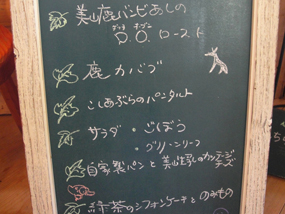 美山鹿バンビあしの
ダッチ オーブン
D.O. ロースト
鹿カバブ
こしあぶらのパンタルト
サラダ・ごぼう
・グリーンリーフ
自家製パンと美山
チーズ
緑茶のシフォンケーキとのみもの